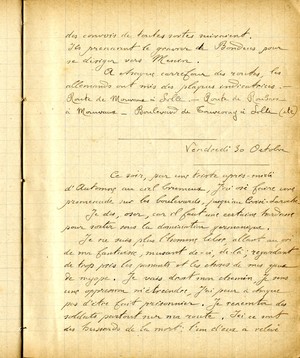 des convois de toutes sortes suivaient.
Ils prenaient le chemin de Bondues pour
se diriger vers Menin.
A chaque carrefour des routes, les
allemands ont mis des plaques indicatrices. —
Route de Mouvaux à Lille — Route de Roubaix
à Mouvaux — Boulevard de Tourcoing à Lille (etc)
Vendredi 30 Octobre
Ce soir, par une triste après-midi
d'Automne au ciel brumeux, j'ai été faire une
promenade sur les boulevards, jusqu'au
Je dis, oser, car il faut une certaine
pour sortir sous la domination germanique.
Je ne suis plus l'homme libre, allant au gré
de ma fantaisie, musant de ci, de là; regardant
de trop près les passants et les choses de mes yeux
de myope. Je vais droit mon chemin, je sens
une oppression m'étreindre. J'ai peur à chaque
pas d'être fait prisonnier. Je rencontre des
soldats partout sur ma route. Ici ce sont
des hussards de la mort: l'un d'eux a relevé